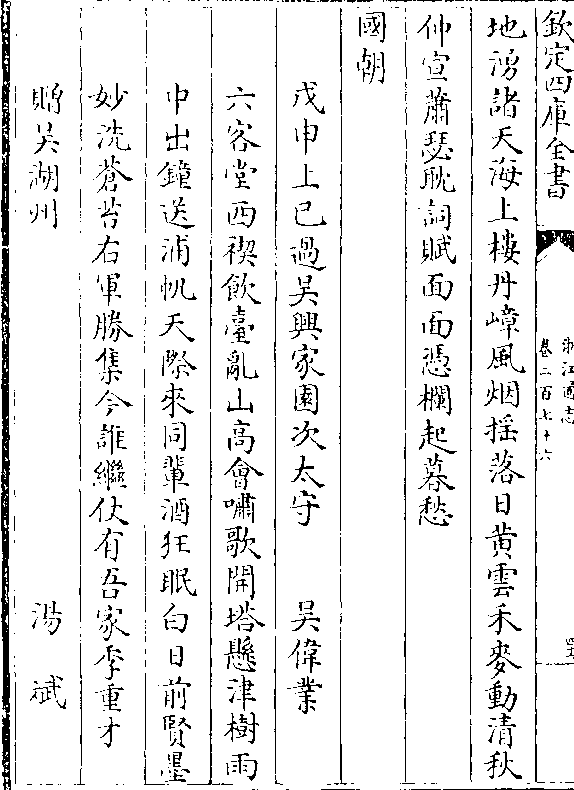 欽定四庫全書
浙江通志
卷二百七十六
地湧諸天海上樓丹嶂風烟揺落日黄雲禾麥動清秋
仲宣蕭瑟耽詞賦面面憑欄起暮愁
國朝
戊申上巳過吳興家園次太守 吳偉業
六客堂西禊飲臺亂山高會嘯歌開塔懸津樹雨
中出鐘送浦帆天際來同軰酒狂眠白日前賢墨
妙洗蒼苔右軍勝集今誰繼仗有吾家季重才
贈吳湖州 湯斌